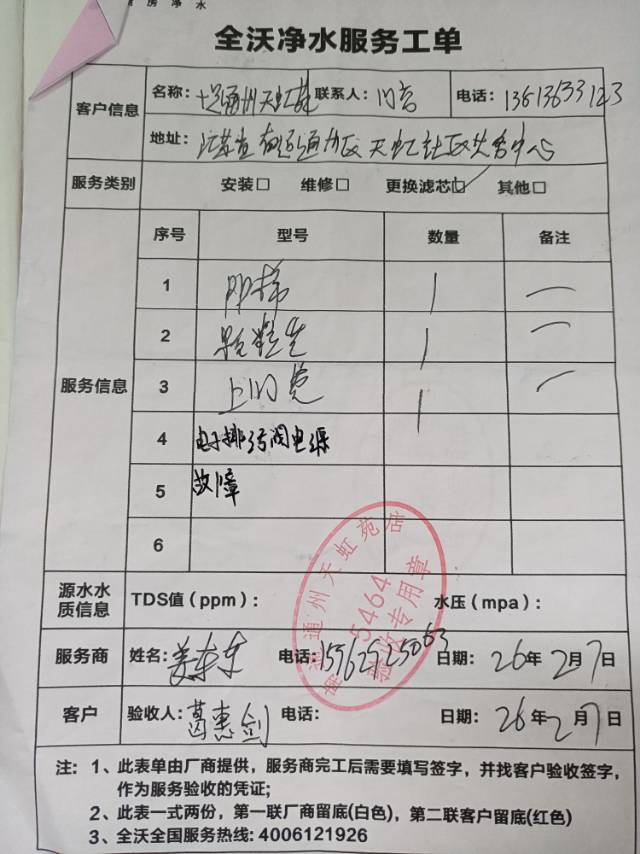 房净水
全沃净水服务工单
客户信息 名称： 通州天虹 联系人： 电话：
地址：江苏省南通通州区天虹社区 中心
服务类别 安装□ 维修□ 更换滤芯☑ 其他□
服务信息 序号 型号 数量 备注
1 PP棉 1 一
2 颗粒炭 1 一
3 1 一
4 电子排污阀电源
5 故障
6
源水水质信息 TDS值（ppm）： 水压（mpa）：
服务商 姓名：姜东东 电话： 日期：26年2月7日
客户 验收人：葛惠剑 电话： 日期：26年2月7日
南通通州天虹苑店
5464
验收专用章
注：1、此表单由厂商提供，服务商完工后需要填写签字，并找客户验收签字，
作为服务验收的凭证；
2、此表一式两份，第一联厂商留底(白色)，第二联客户留底(红色)
3、全沃全国服务热线：4006121926